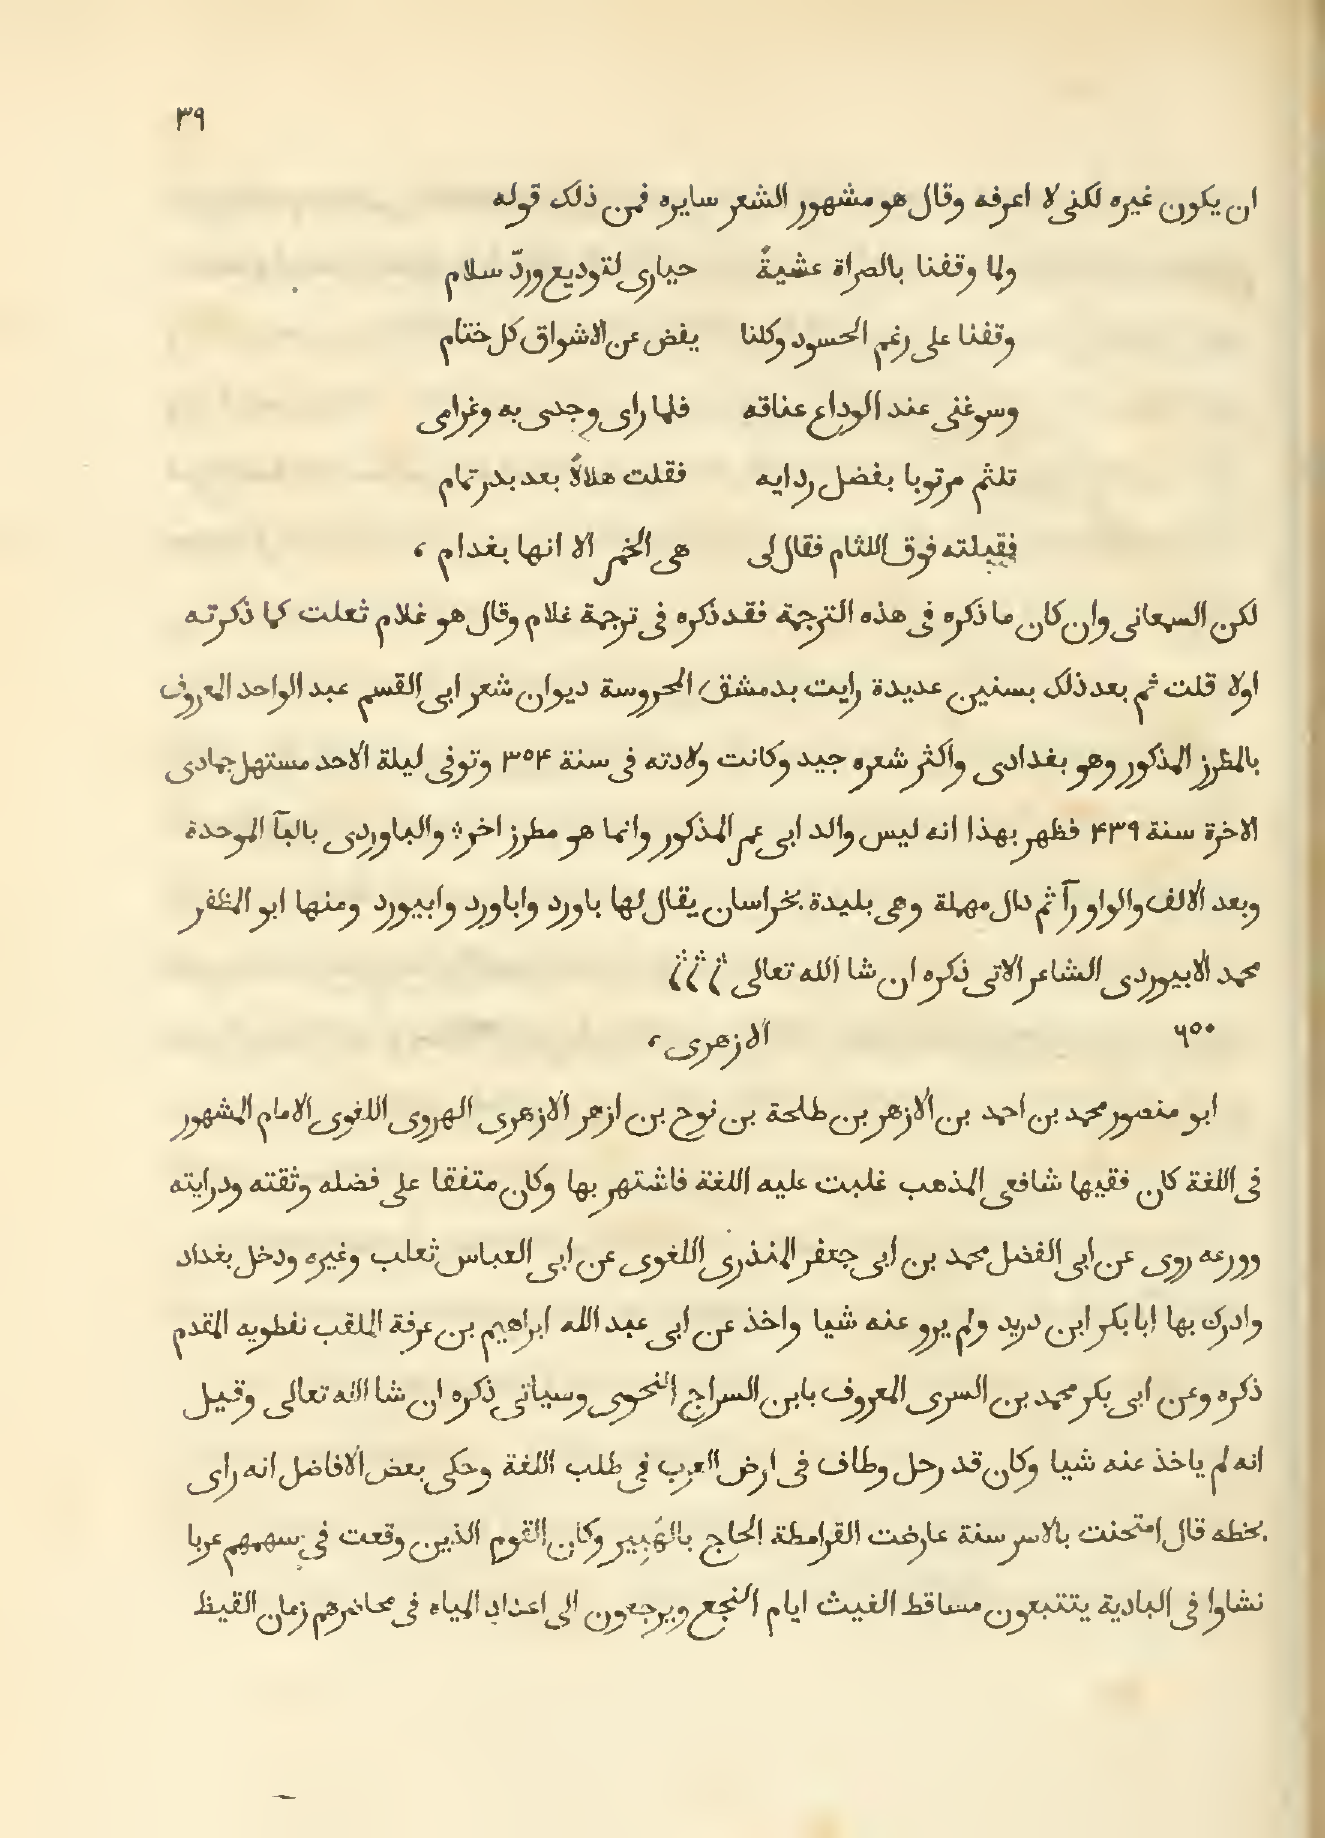 ٣٩
ان يكون غيره لكنى لا اعرفه وقال هو مشهور الشعر سايره فمن ذلك قوله
ولما وقفنا بالصراة عشيةً حيارى لتوديع وردّ سلام
وقفنا على رغم الحسود وكلنا يفض عن الاشواق كل ختام
وسوغنى عند الوداع عناقه فلما راى وجدى به وغرامى
تلثم مرتوبا بفضل ردايه فقلت هلالاً بعد بدر تمام
فقبلته فوق اللثام فقال لى هى الخمر الا انها بغدام ،
لكن السمعانى وان كان ما ذكره فى هذه الترجمة فقد ذكره فى ترجمة غلام وقال هو غلام ثعلت كما ذكرته
اولا قلت ثم بعد ذلك بسنين عديدة رايت بدمشق المحروسة ديوان شعر ابى القسم عبد الواحد المعروف
بالمطرز المذكور وهو بغدادى واكثر شعره جيد وكانت ولادته فى سنة ٣٥٤ وتوفى ليلة الاحد مستهل جمادى
الاخرة سنة ٤٣٩ فظهر بهذا انه ليس والد ابى عمر المذكور وانما هو مطرز اخر والباوردى بالبآ الموحدة
وبعد الالف والواو رآ ثم دال مهملة وهى بليدة بخراسان يقال لها باورد واباورد وابيورد ومنها ابو المظفر
محمد الابيوردى الشاعر الاتى ذكره ان شا الله تعالى
٦٥٠ الازهرى ،
ابو منصور محمد بن احمد بن الازهر بن طلحة بن نوح بن ازهر الازهرى الهروى اللغوى الامام المشهور
فى اللغة كان فقيها شافعى المذهب غلبت عليه اللغة فاشتهر بها وكان متفقا على فضله وثقته ودرايته
وورعه روى عن ابى الفضل محمد بن ابى جعفر المنذرى اللغوى عن ابى العباس ثعلب وغيره ودخل بغداد
وادرك بها ابا بكر ابن دريد ولم يرو عنه شيا واخذ عن ابى عبد الله ابراهيم بن عرفة الملقب نفطويه المقدم
ذكره وعن ابى بكر محمد بن السرى المعروف بابن السراج النحوى وسياتى ذكره ان شا الله تعالى وقيل
انه لم ياخذ عنه شيا وكان قد رحل وطاف فى ارض العرب فى طلب اللغة وحكى بعض الافاضل انه راى
بخطه قال امتحنت بالاسر سنة عارضت القرامطة الحاج بالهَبِير وكان القوم الذين وقعت فى سهمهم عربا
نشاوا فى البادية يتتبعون مساقط الغيث ايام النجع ويرجعون الى اعداد المياه فى محاضرهم زمان القيظ